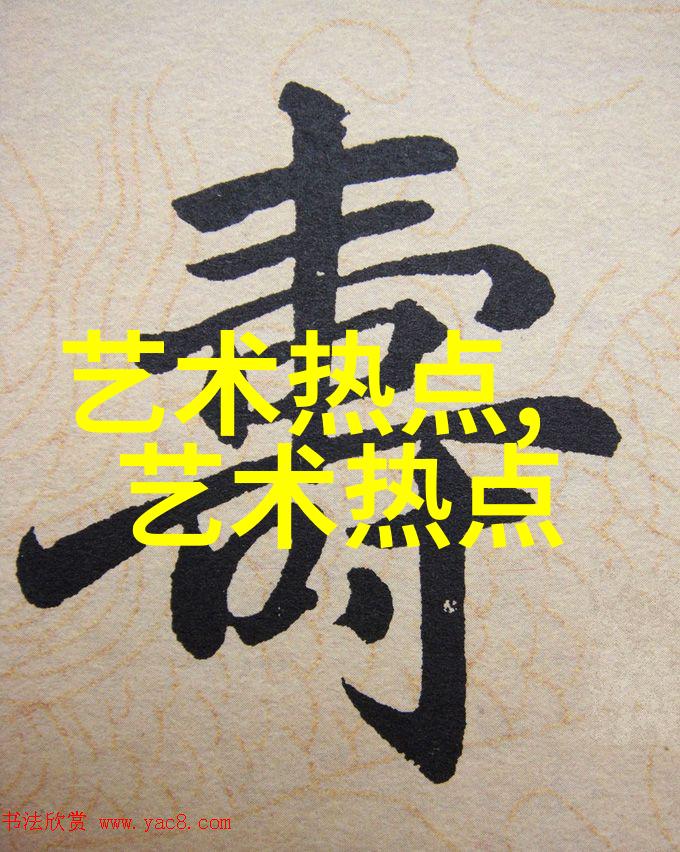 壽
艺术热点,
艺术热点
书法欣赏 www.yac8.com